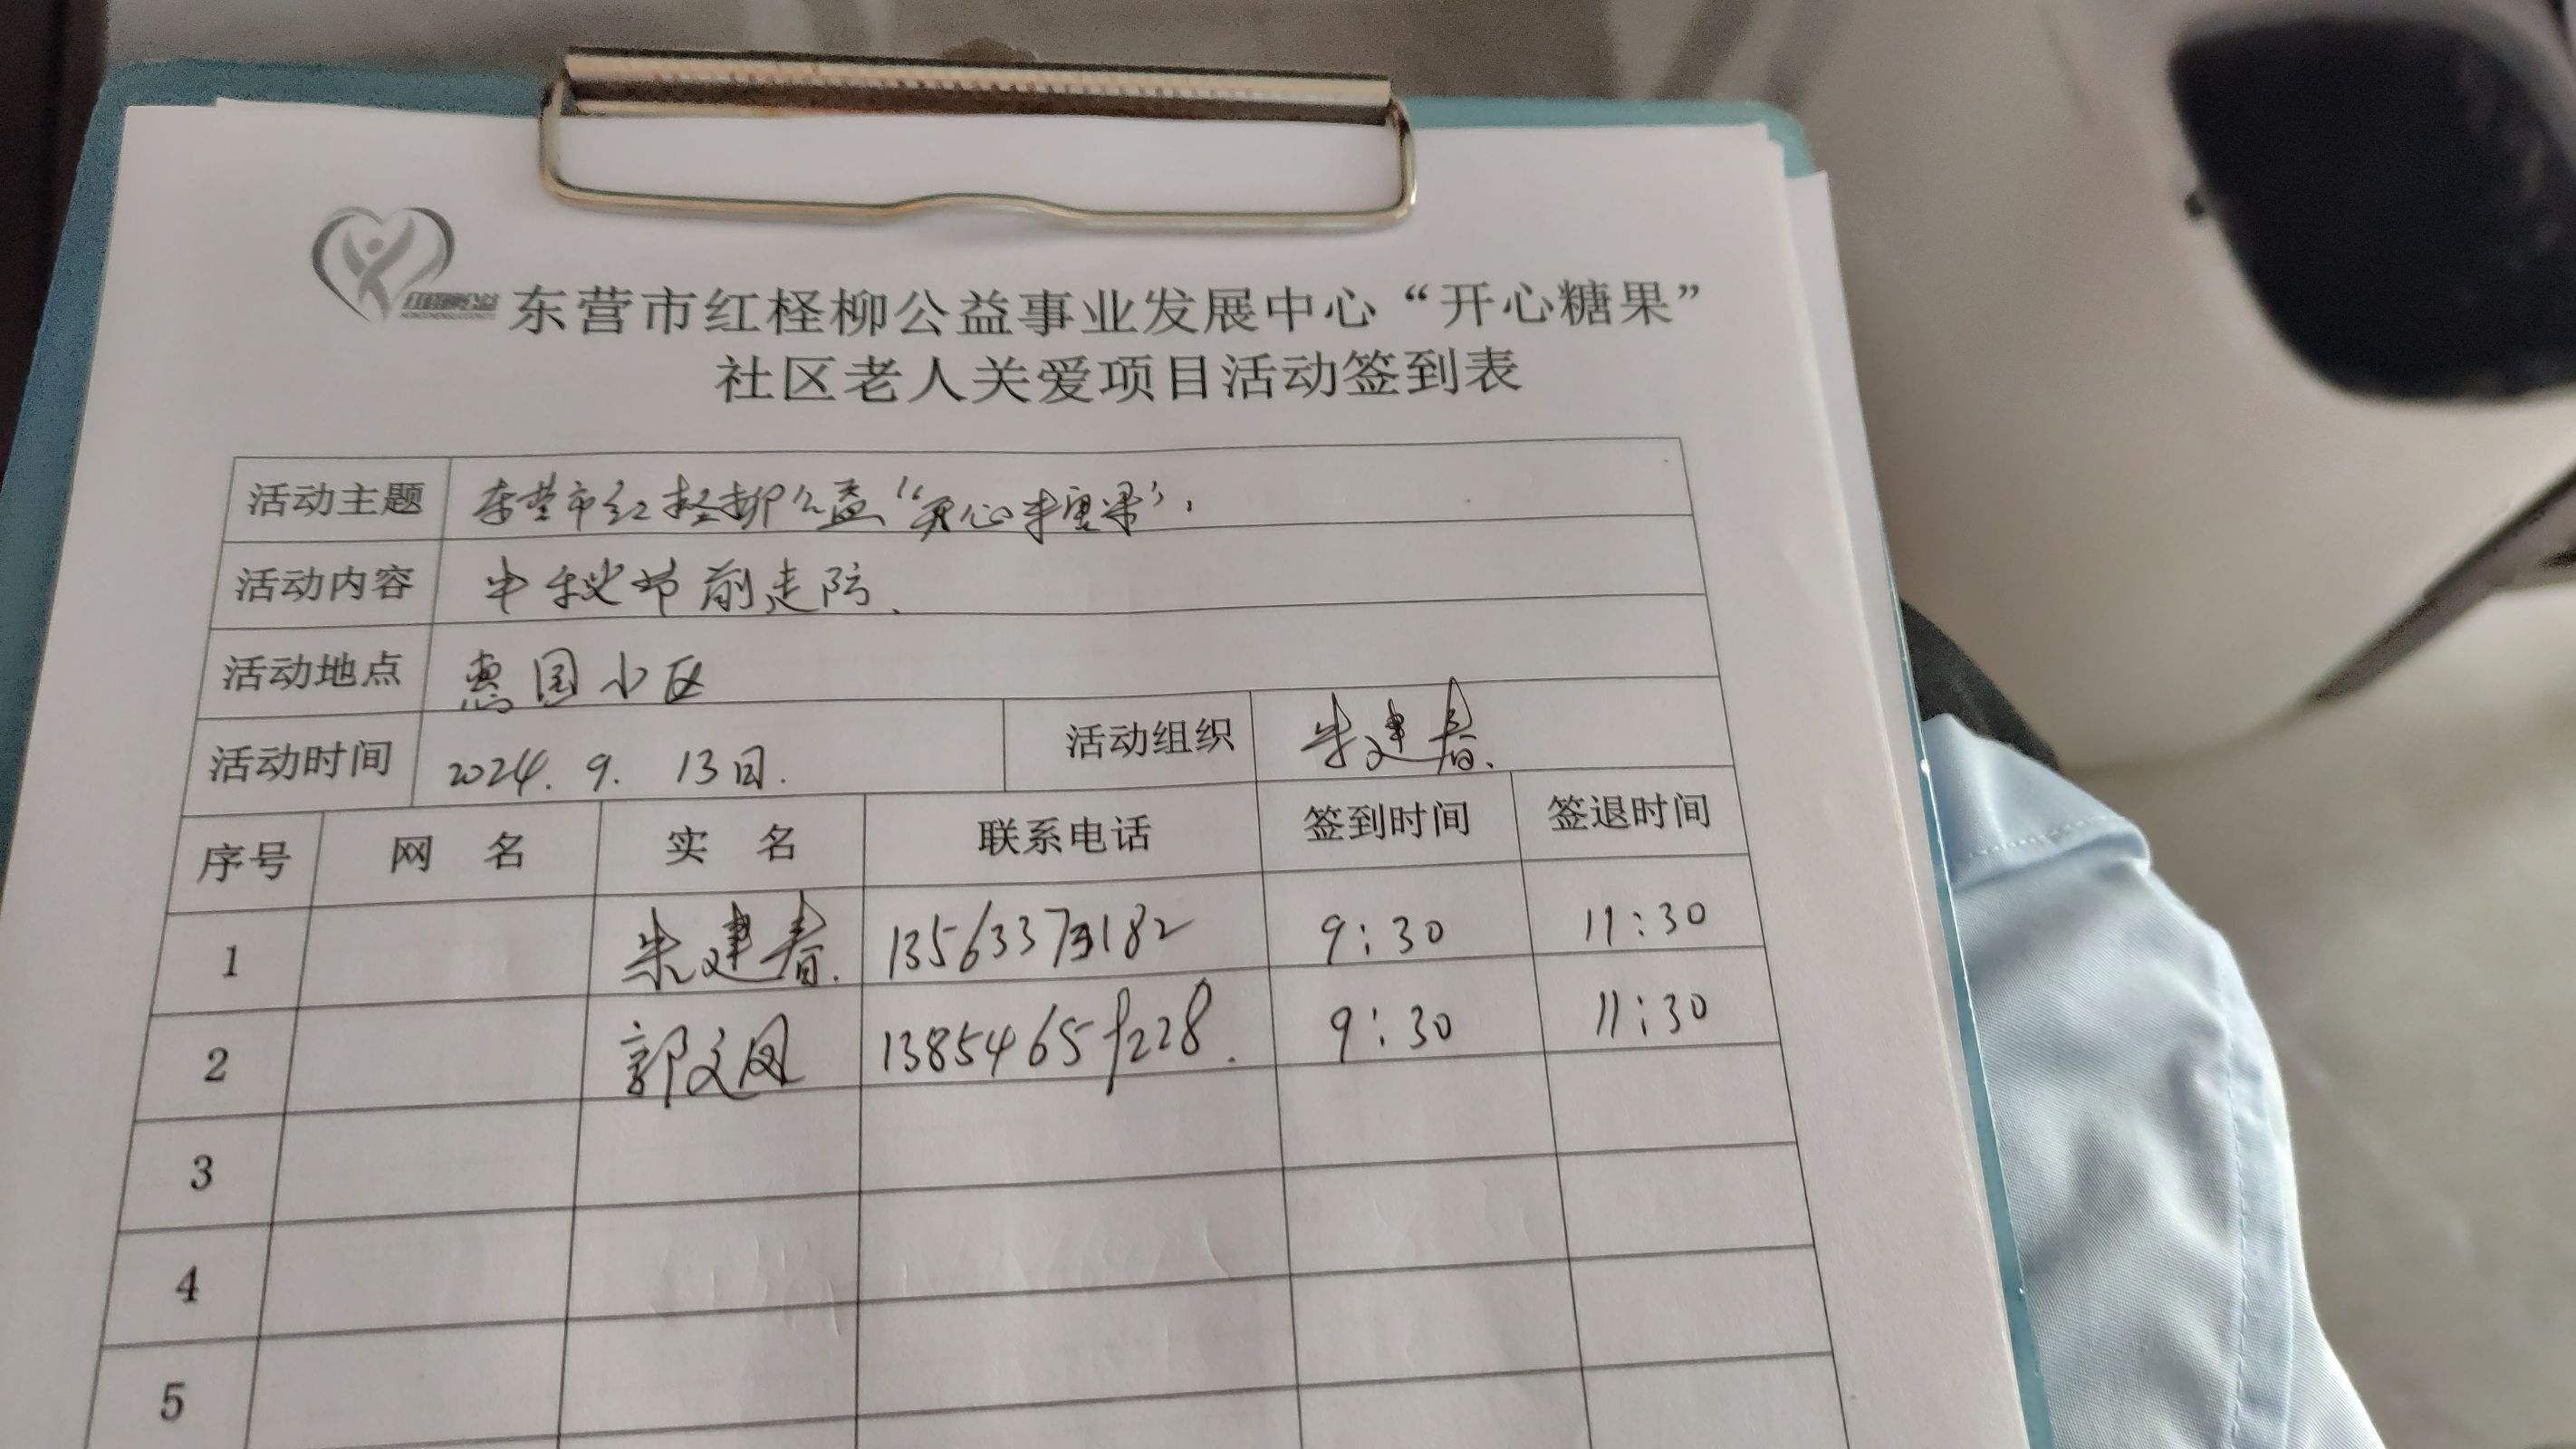 东营市红柽柳公益事业发展中心“开心糖果”
社区老人关爱项目活动签到表
活动主题 东营市红柽柳公益“开心糖果”.
活动内容 中秋节前走访.
活动地点 惠园小区
活动时间 2024. 9. 13日. 活动组织 朱建春.
序号 网 名 实 名 联系电话 签到时间 签退时间
1 朱建春. 9:30 11:30
2 郭文凤 9:30 11:30
3
4
5